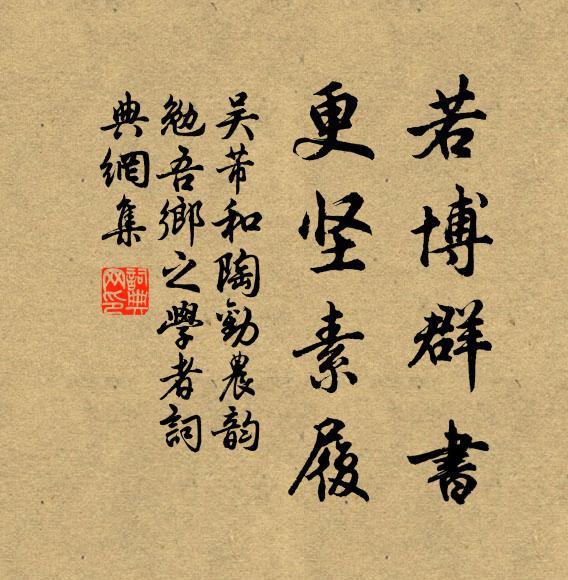 若博群書
更坚素履
吴芾和陶勸農韵
勉吾鄉之學者詞
典網集
詞典
网印